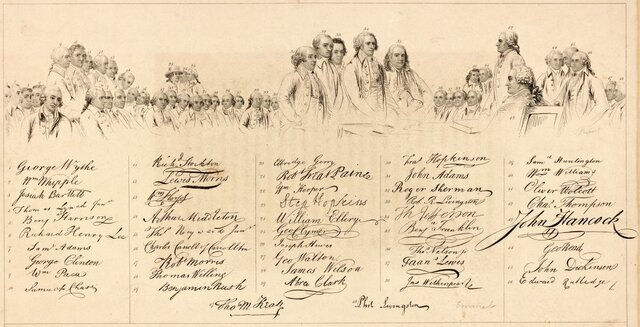 George Wythe
Wm Whipple
Josiah Bartlett
Thomas Lynch Junr
Benj Harrison
Richard Henry Lee
Saml Adams
George Clinton
Wm Paca
Samuel Chase
Richd Stockton
Lewis Morris
Wm Floyd
Arthur Middleton
Thos Heyward Junr
Charles Carroll of Carrollton
Robt Morris
Thomas Willing
Benjamin Rush
Elbridge Gerry
Robt Treat Paine
Wm Hooper
Step Hopkins
William Ellery
Geo Clymer
Joseph Hewes
Geo Walton
James Wilson
Abra Clark
Fras Hopkinson
John Adams
Roger Sherman
Robt R Livingston
Th Jefferson
Benj Franklin
Thos Nelson jr
Frans Lewis
Jno Witherspoon
Saml Huntington
Wm Williams
Oliver Wolcott
Chas Thompson
John Hancock
Geo Read
John Dickinson
Edward Rutledge
Tho M. Kean
Phil Livingston